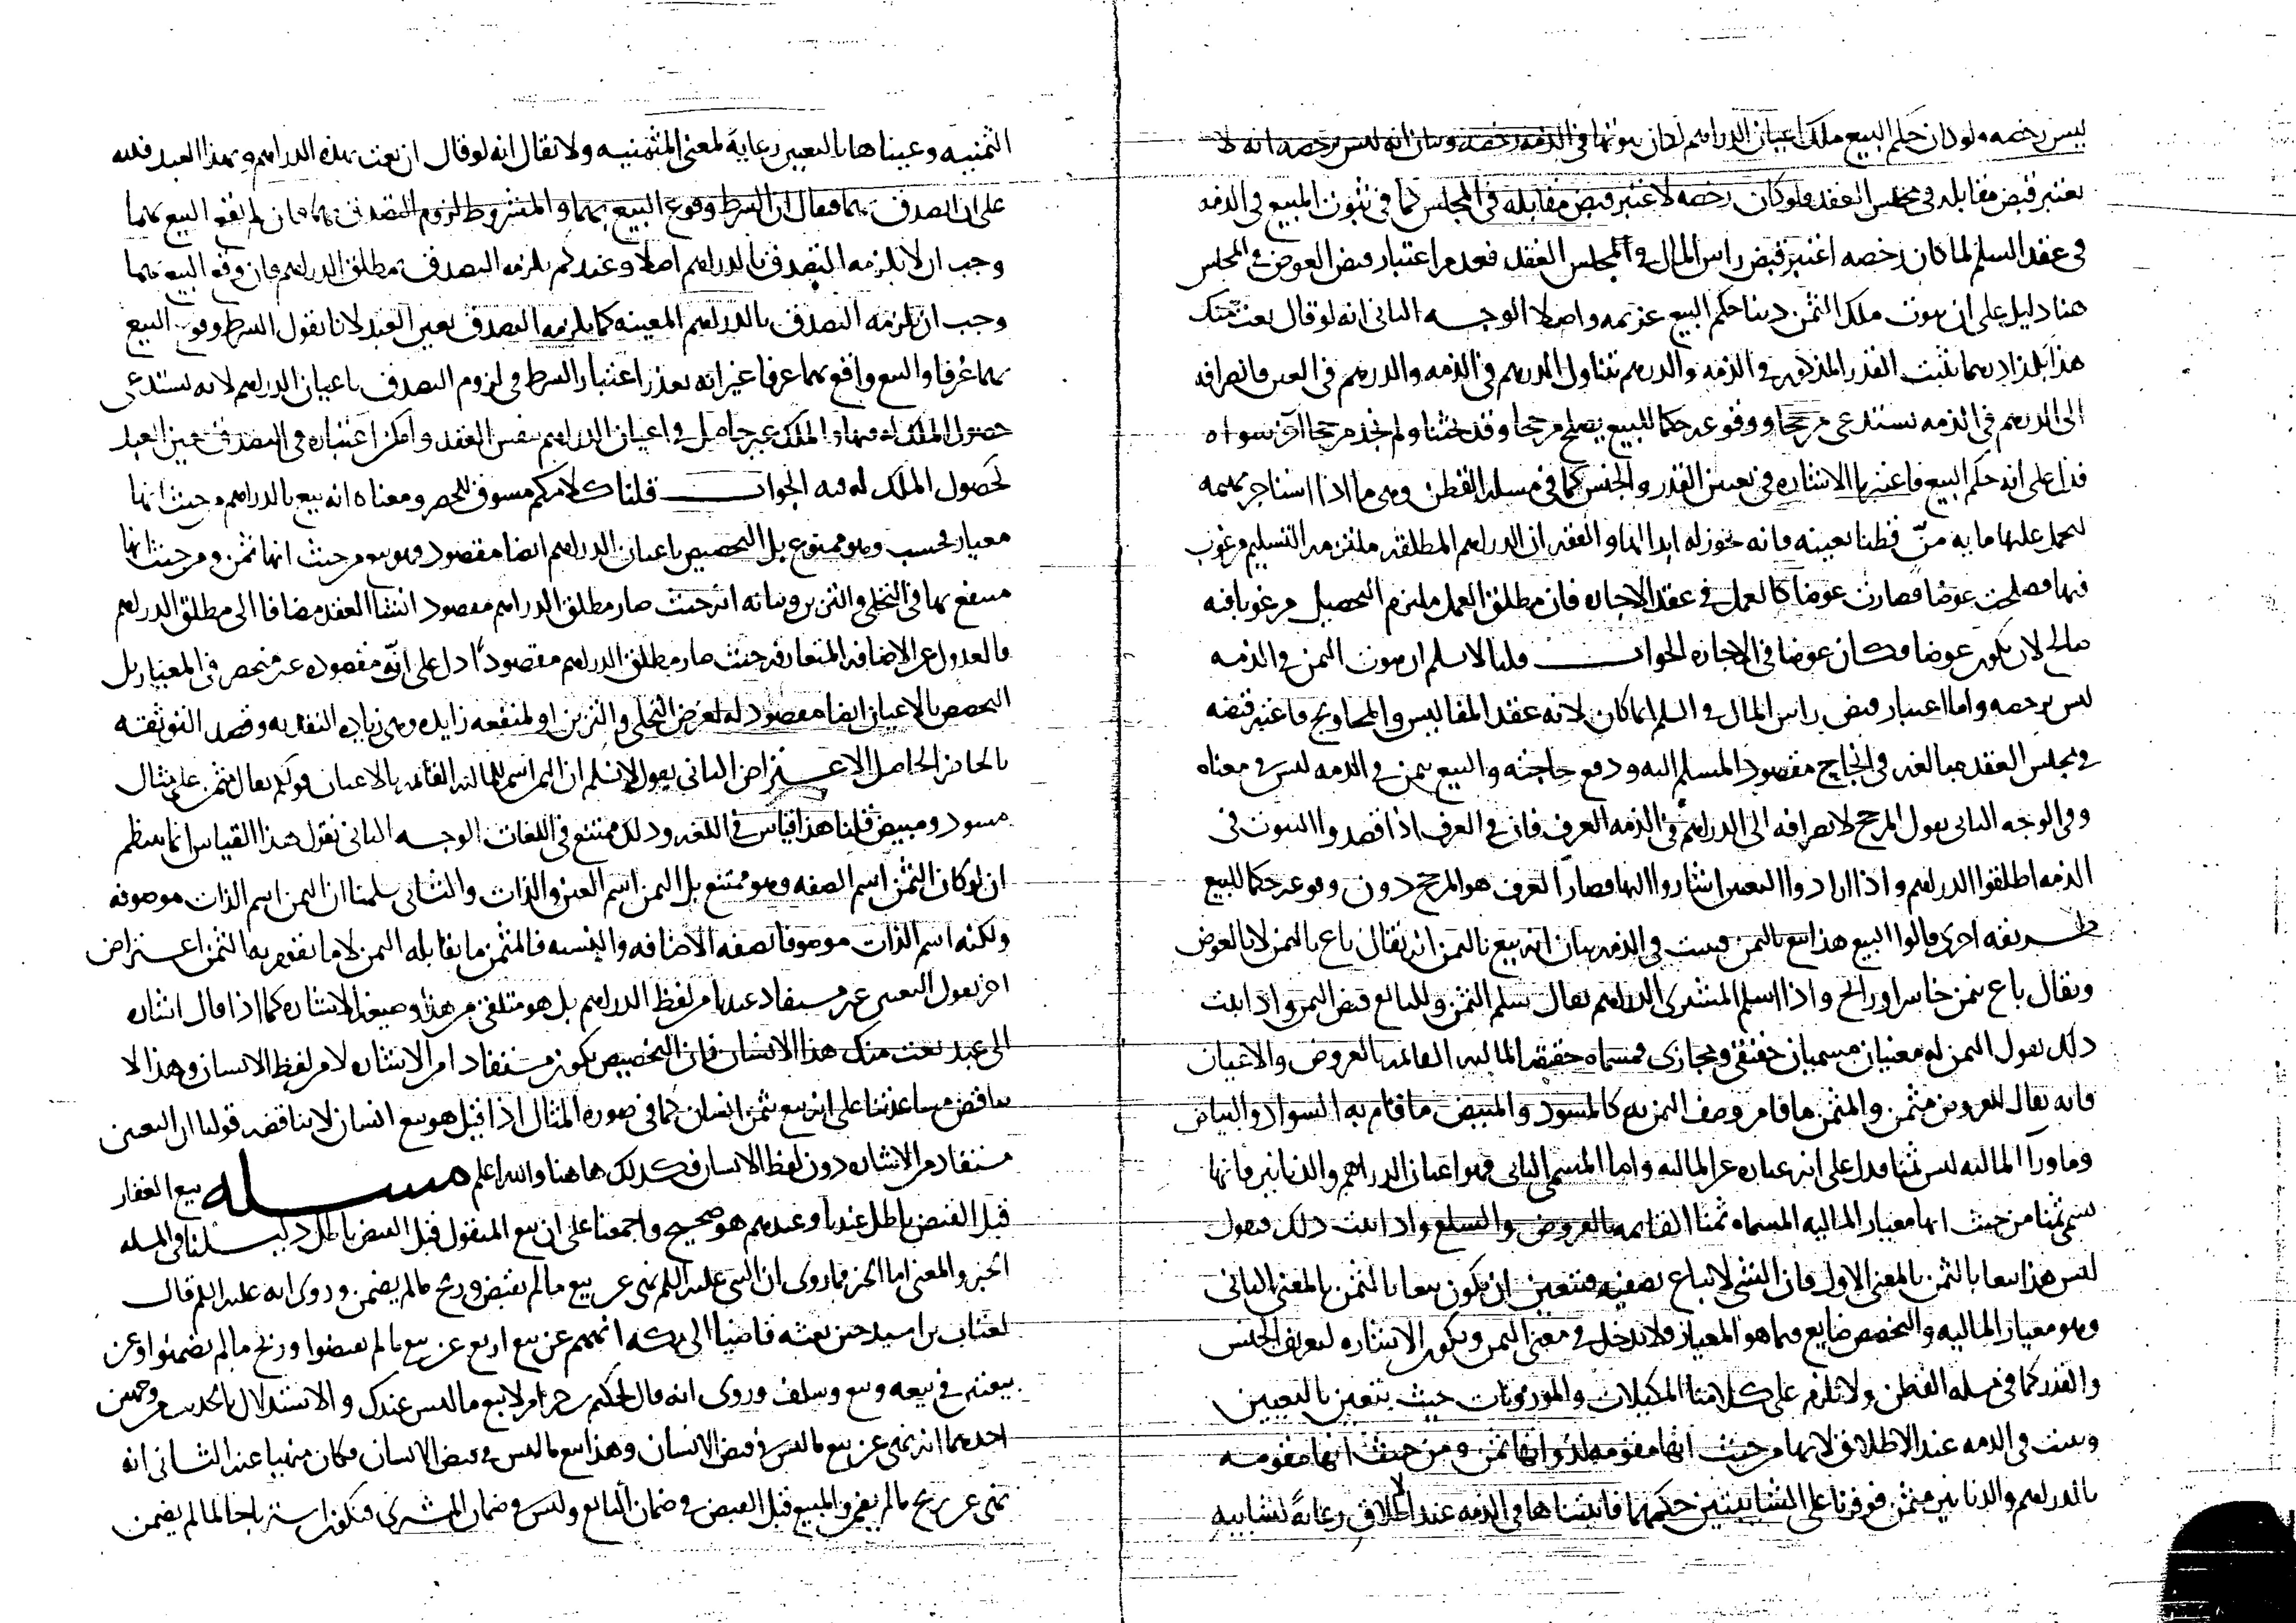 ليس رخصه ولو كان حكم البيع ملك اعيان الدراهم لكان ثبوتها في الذمه رخصه وبيان انه ليس برخصه انه لا
يعتبر قبض مقابله في مجلس العقد ولو كان رخصه لاعتبر قبض مقابله في المجلس كما في ثبوت المبيع في الذمه
في عقد السلم لما كان رخصه اعتبر قبض راس المال في المجلس العقد فعدم اعتبار قبض العوض في المجلس
هنا دليل على ان ثبوت ملك الثمن دينا حكم البيع عزيمه واصلا الوجه الثاني انه لو قال بعت منك
هذا بهذا درهما يثبت القدر المذكور في الذمه والدرهم يتناول الدرهم في الذمه والدرهم في العين فانصرافه
الى الدرهم في الذمه يستدعي مرجحا ووقوعه حكما للبيع يصلح مرجحا وقد بحثنا ولم نجد مرجحا اخر سواه
فدل على انه حكم البيع فاعتبرنا الاشاره في تعيين القدر والجنس كما في مسله القطن وهي ما اذا استاجر بهيمه
ليحمل عليها مايه من قطنا بعينه فانه يجوز له ابدالها والفقه ان الدراهم المطلقه ملتزمه التسليم مرغوب
فيها فصلحت عوضا فصارت عوضا كالعمل في عقد الاجاره فان مطلق العمل ملتزم التحصيل مرغوبا فيه
صالح لان يكون عوضا فكان عوضا في الاجاره الجواب قلنا لا نسلم ان ثبوت الثمن في الذمه
ليس برخصه واما اعتبار قبض راس المال في السلم انما كان لانه عقد المفاليس والمحاويج فاعتبر قبضه
في مجلس العقد مبالغه في انجاح مقصود المسلم اليه ودفع حاجته والبيع بثمن في الذمه ليس في معناه
وفي الوجه الثاني نقول المرجح لانصرافه الى الدراهم في الذمه العرف فان في العرف اذا قصدوا الثبوت في
الذمه اطلقوا الدراهم واذا ارادوا التعيين اشاروا اليها فصار العرف هو المرجح دون وقوعه حكما للبيع
طريقه اخرى قالوا البيع هذا بيع بالثمن فيثبت في الذمه بيان انه بيع بالثمن انه يقال باع بالثمن لا بالعوض
ويقال باع بثمن خاسر او رابح واذا اسلم المشتري الدراهم يقال سلم الثمن وللبائع قبض الثمن واذا ثبت
ذلك نقول الثمن له معنيان مسميان حقيقي ومجازي فمسماه حقيقه الماليه القائمه بالعروض والاعيان
فانه يقال للعروض مثمن والمثمن ما قام وصف الثمن به كالمسود والمبيض ما قام به السواد والبياض
وما ورآ الماليه ليس ثمنا فدل على انه عباره عن الماليه واما المسمى الثاني فهو اعيان الدراهم والدنانير فانها
تسمى ثمنا من حيث انها معيار الماليه المسماه ثمنا القائمه بالعروض والسلع واذا ثبت ذلك فنقول
ليس هذا بيعا بالثمن بالمعنى الاول فان الشي لا يباع بصفته فتعين ان يكون بيعا بالثمن بالمعنى الثاني
وهو معيار الماليه والتخصص ضايع فيما هو المعيار فلا يدخل في معنى الثمن ويكون الاشاره لتعريف الجنس
والقدر كما في مسله القطن ولا يلزم على كلامنا المكيلات والموزونات حيث يتعين بالتعيين
ويثبت في الذمه عند الاطلاق لانها من حيث انها مقومه لذواتها ثمن ومن حيث انها مقومه
بالدراهم والدنانير مثمن فوفرنا على الشايبتين حكمهما فاثبتناها في الذمه عند الاطلاق رعاية لشايبه
الثمنيه وعيناها بالتعيين رعاية لمعنى المثمنيه ولا يقال انه لو قال ان بعت بهذه الدراهم وبهذا العبد فلله
علي ان اتصدق بهما فيقال ان الشرط وقوع البيع بهما والمشروط لزوم التصدق بهما فان لم يقع البيع بهما
وجب ان لا يلزمه التصدق بالدراهم اصلا وعندكم يلزمه التصدق بمطلق الدراهم فان وقع البيع بهما
وجب ان يلزمه التصدق بالدراهم المعينه كما يلزمه التصدق بعين العبد لانا نقول الشرط وقوع البيع
بهما عرفا والبيع واقع بهما عرفا غير انه تعذر اعتبار الشرط في لزوم التصدق باعيان الدراهم لانه يستدعي
حصول الملك له فيها والملك غير حاصل في اعيان الدراهم بنفس العقد وامكن اعتباره في التصدق بعين العبد
لحصول الملك له فيه الجواب قلنا كلامكم مسوق للحصر ومعناه انه بيع بالدراهم من حيث انها
معيار فحسب وهو ممنوع بل التخصيص باعيان الدراهم ايضا مقصود وهو بيع من حيث انها ثمن ومن حيث انها
منتفع بها في التحلي والتزين وبيانه انه حيث صار مطلق الدراهم مقصود انشا العقد مضافا الى مطلق الدراهم
فالعدول عن الاضافه المتعارفه حيث صار مطلق الدراهم مقصودا دل على انه مقصوده غير منحصر في المعيار بل
التخصص بالاعيان ايضا مقصود له لغرض التحلي والتزين او لمنفعه زايده وهي زياده النقديه وقصد التوثقه
بالحاضر الحاصل الاعتراض الثاني يقول لا نسلم ان الثمن اسم للماليه القائمه بالاعيان قولكم يقال مثمن على مثال
مسود ومبيض قلنا هذا قياس في اللغه وذلك ممتنع في اللغات الوجه الثاني نقول هذا القياس انما ينتظم
ان لو كان الثمن اسم الصفه وهو ممتنع بل الثمن اسم العين والذات والثاني سلمنا ان الثمن اسم الذات موصوفه
ولكنه اسم الذات موصوفا بصفه الاضافه والنسبه فالمثمن ما يقابله الثمن لا ما يقوم به الثمن اعتراض
اخر نقول التعيين غير مستفاد عندنا من لفظ الدراهم بل هو متلقى من هذا وصيغه الاشاره كما اذا قال اشاره
الى عبد بعت منك هذا الانسان فان التخصيص يكون مستفادا من الاشاره لا من لفظ الانسان وهذا لا
يناقض مساعدتنا على انه بيع بثمن انسان كما في صوره المثال اذا قيل هو بيع انسان لا يناقضه قولنا ان التعيين
مستفاد من الاشاره دون لفظ الانسان فكذلك هاهنا والله اعلم مسله بيع العقار
قبل القبض باطل عندنا وعندهم هو صحيح واجمعنا على ان بيع المنقول قبل القبض باطل دليلنا في المسله
الخبر والمعنى اما الخبر فما روي ان النبي عليه السلم نهى عن بيع ما لم يقبض وربح ما لم يضمن وروي انه عليه السلم قال
لعتاب بن اسيد حين بعثه قاضيا الى مكه انههم عن بيع اربع عن بيع ما لم يقبضوا وربح ما لم يضمنوا وعن
بيعتين في بيعه وبيع وسلف وروي انه قال لحكيم بن حزام لا تبع ما ليس عندك والاستدلال بالحديث من وجهين
احدهما انه نهى عن بيع ما ليس في قبض الانسان وهذا بيع ما ليس في قبض الانسان فكان منهيا عنه الثاني انه
نهى عن ربح ما لم يضمن والمبيع قبل القبض في ضمان البائع وليس في ضمان المشتري فيكون استرباحا لما لم يضمن